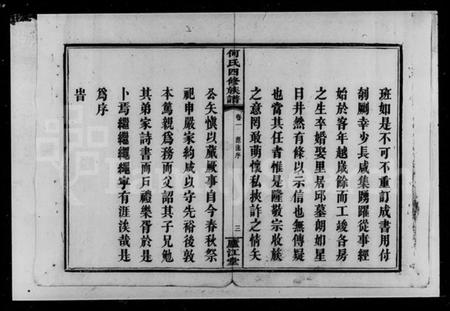 班如是不可不重訂成書用付
剞劂幸少長咸集踴躍從事經
始於客年越歲餘而工竣各房
之生卒婚娶里居邱墓朗如星
日井然有條以示信也無傳疑
也當其任者惟是隆敬宗收族
之意罔敢萌懷私挾詐之情矣
何氏四修族譜
卷一
序
三
廬江堂
公矣慎以蕆厥事自今春秋祭
祀申嚴家約咸以守先裕後敦
本篤親為務而父詔其子兄勉
其弟家詩書而戶禮樂胥於是
卜焉繼繼繩繩寧有涯涘哉是
為序
旹